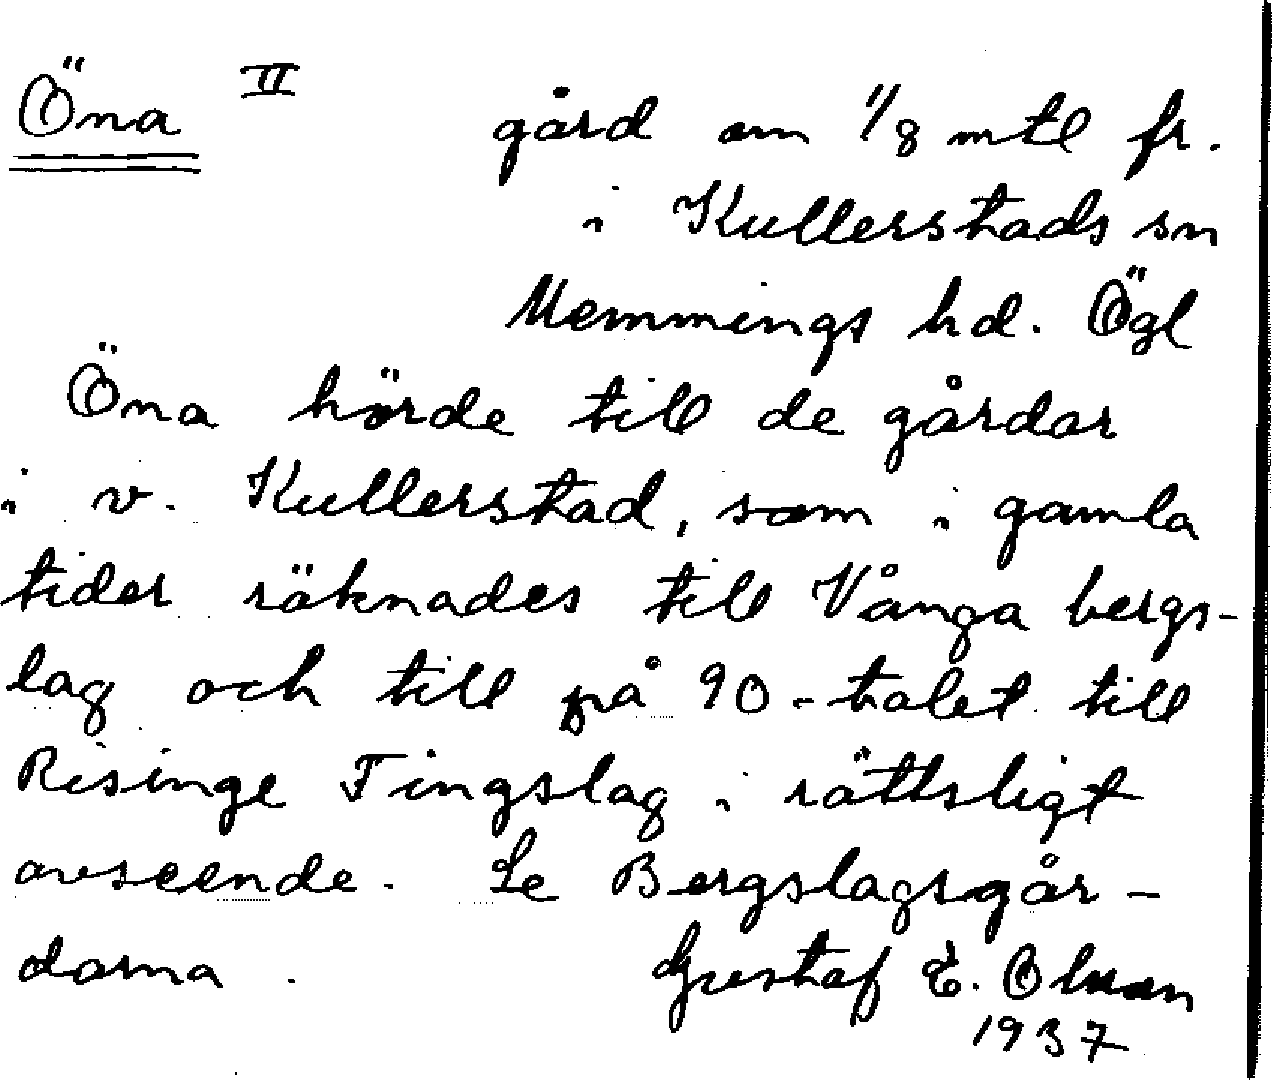 Öna II gård om 1/8 mtl fr.
i Kullerstads sn
Memmings hd. Ögl
Öna hörde till de gårdar
i v. Kullerstad, som i gamla
tider räknades till Vånga bergs-
lag och till på 90-talet till
Risinge Tingslag i rättsligt
avseende. Se Bergslagsgår-
darna. Gustaf E. Olsson
1937